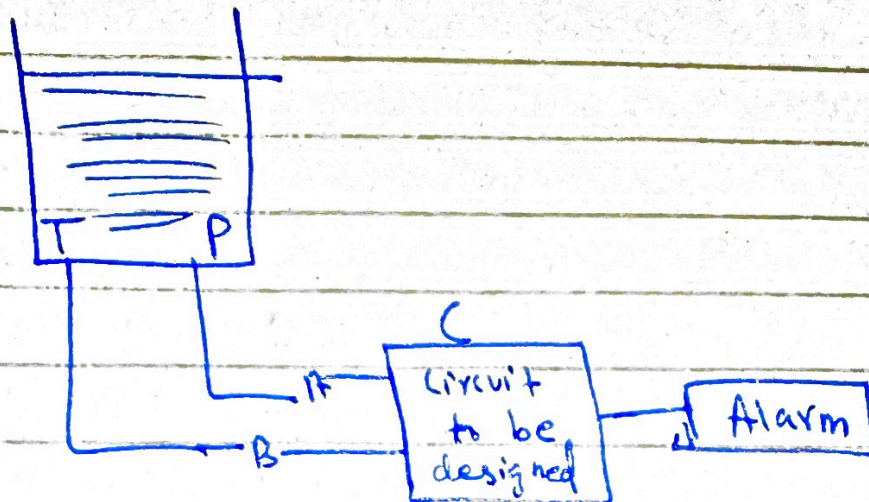 T P
C
A
B
Circuit
to be
designed
Alarm